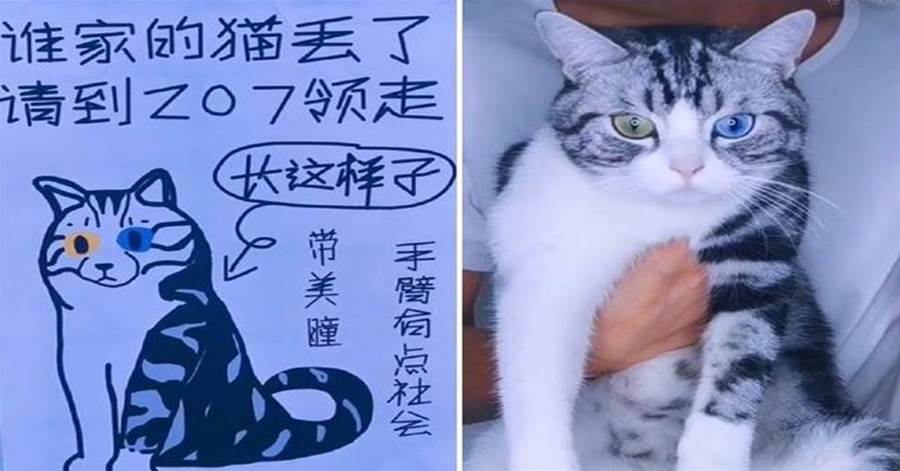 谁家的猫丢了
请到207领走
长这样子
带美瞳
手臂有点社会